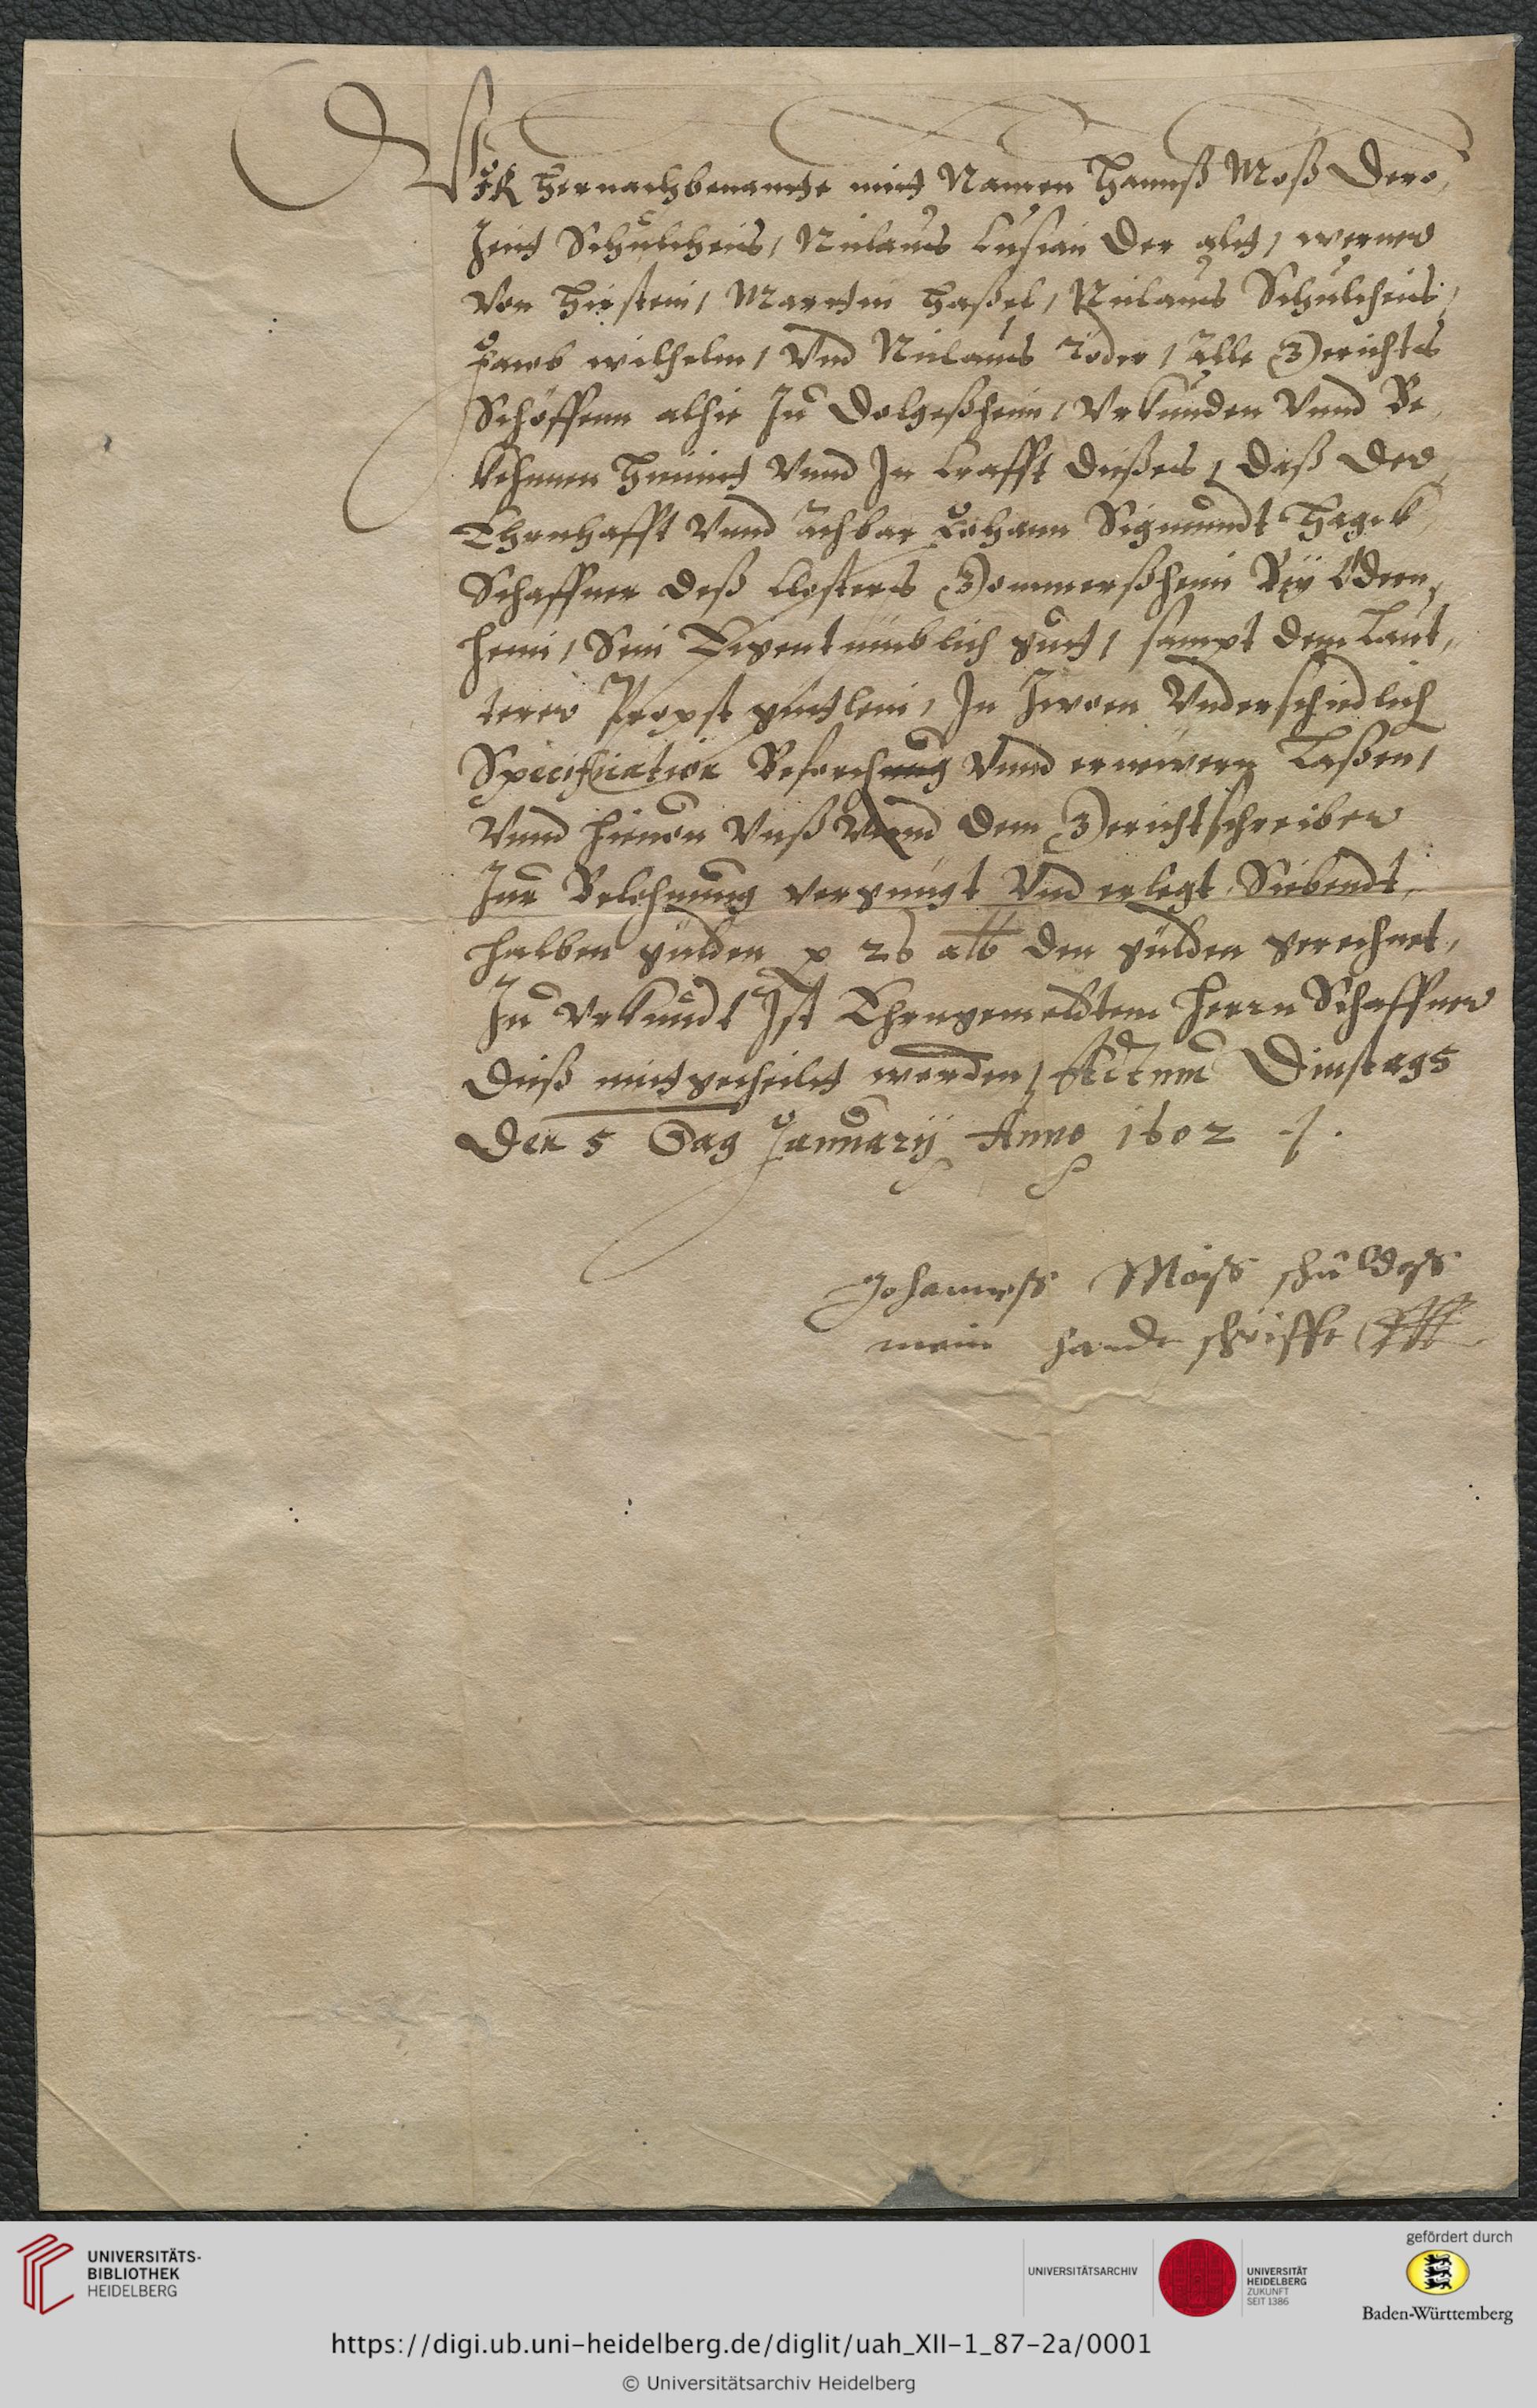 Wir hernachbenante mit Namen Hannß Moß Dero
Zeit Schultheis, Niclaus Lusian der alt, werner
von Hirstein, Martin Haßel, Niclaus Schultheis,
Jacob wilhelm, Vnd Niclaus Röder, Alle Gerichts
Schöffenn alhie Zu Dolgeßheim, Vrkunden Vnnd Be,
kehnnen hiemit Vnnd In krafft dießes, daß der
Ehrnhafft Vnnd achbar Johann Sigmundt Hagck
Schaffner deß Closters Gommerßheim Bey Odern,
heim, Sein Eigentumblich gut, sampt dem Laut,
terer Propst gutlein, In Zwoen Vnderschiedlich
Specification Beforchung Vnnd ernewern Laßen,
Vnnd hieuon Vnß Vnnd dem Gerichtschreiber
Zur Belohnung vergnügt Vnd erlegt Siebendt,
halben gulden p 26 alb den gulden gerechnet,
Zu Vrkundt Ist Ehrngemeldtem herrn Schaffner
dieß mitgetheilt worden, Actum Dinstags
Den 5 Tag Januarij Anno 1602
Johannes Moß schuldes
mein hande schriffe
UNIVERSITÄTS-
BIBLIOTHEK
HEIDELBERG
UNIVERSITÄTSARCHIV
UNIVERSITÄT
HEIDELBERG
ZUKUNFT
SEIT 1386
gefördert durch
Baden-Württemberg
https://digi.ub.uni-heidelberg.de/diglit/uah_XII-1_87-2a/0001
© Universitätsarchiv Heidelberg